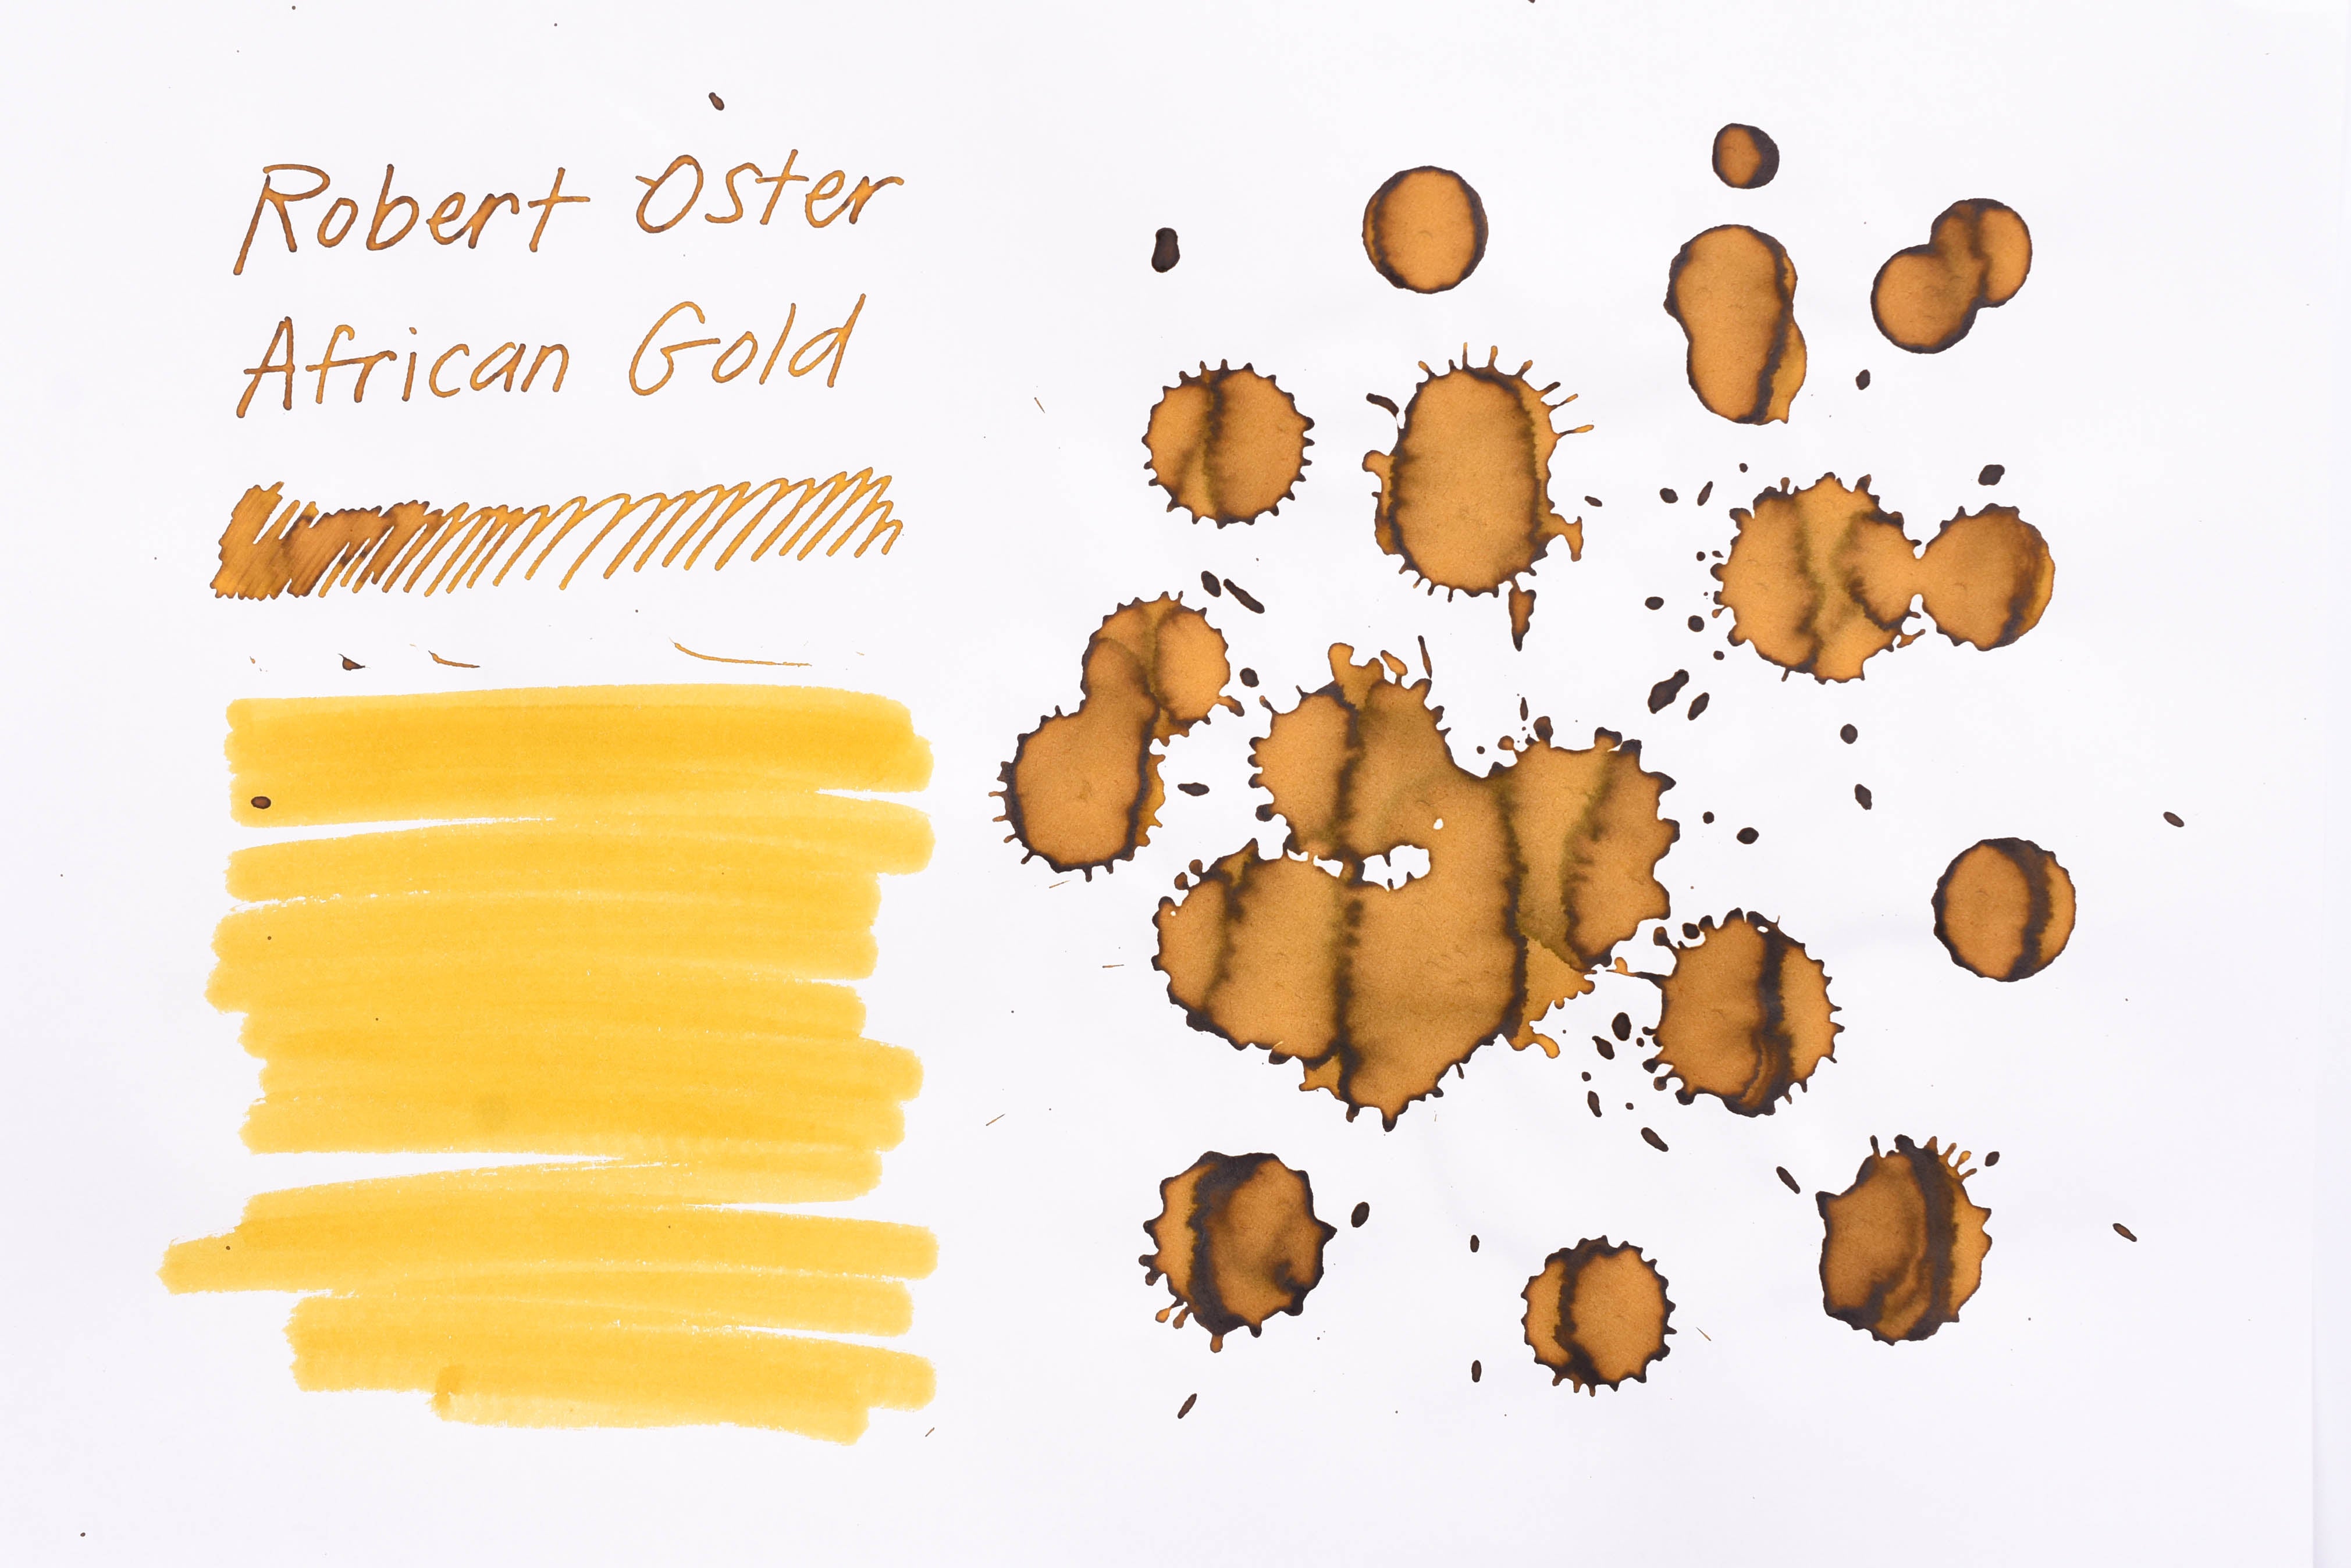 Robert Oster
African Gold